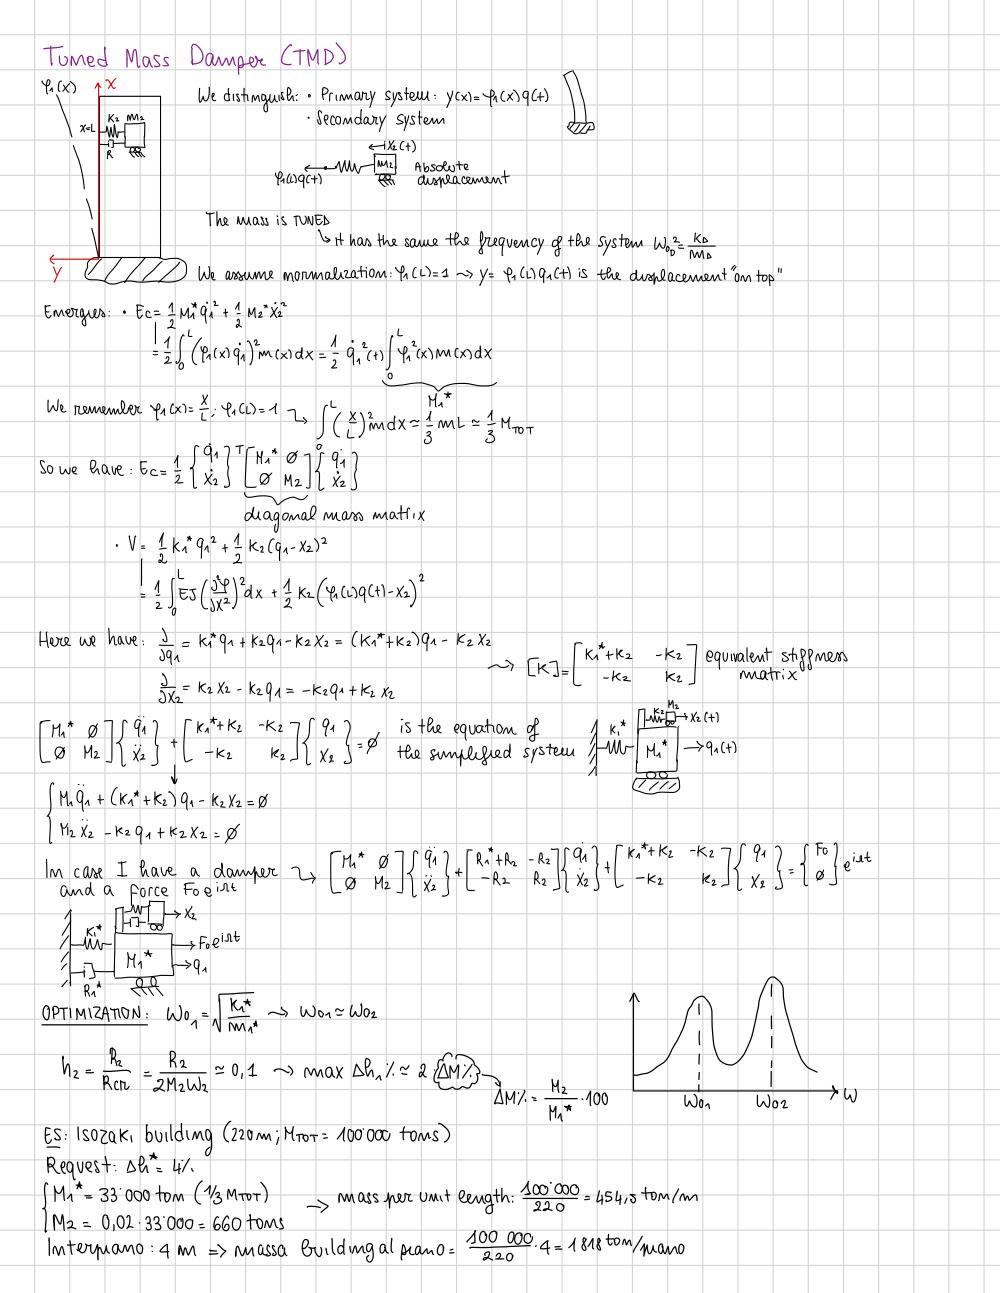 Tuned Mass Damper (TMD)
φ₁(x)
x
x=L
K₂ m₂
R
y
We distinguish: • Primary system: y(x)=φ₁(x)q(t)
• Secondary system
x₂(t)
φ₁(L)q(t)
M₂
Absolute
displacement
The mass is TUNED
↳ it has the same the frequency of the system ω₀D² = KD/MD
We assume normalization: φ₁(L)=1 ⤳ y= φ₁(L)q₁(t) is the displacement "on top"
Energies: • Ec= 1/2 M₁* q̇₁² + 1/2 M₂* ẋ₂²
= 1/2 ∫₀ᴸ (φ₁(x) q̇₁)² m(x)dx = 1/2 q̇₁²(t) ∫₀ᴸ φ₁²(x)m(x)dx
M₁*
We remember φ₁(x)= x/L; φ₁(L)=1 ⤳ ∫₀ᴸ (x/L)² mdx ≃ 1/3 mL ≃ 1/3 MTOT
So we have: Ec= 1/2 {q̇₁ ẋ₂}ᵀ [M₁* ∅ ∅ M₂] {q̇₁ ẋ₂}
diagonal mass matrix
• V= 1/2 K₁* q₁² + 1/2 K₂(q₁-x₂)²
= 1/2 ∫₀ᴸ EJ (∂²φ/∂x²)² dx + 1/2 K₂ (φ₁(L)q(t)-x₂)²
Here we have: ∂/∂q₁ = K₁*q₁ + K₂q₁ - K₂x₂ = (K₁*+K₂)q₁ - K₂x₂
∂/∂x₂ = K₂x₂ - K₂q₁ = -K₂q₁ + K₂x₂
⤳ [K]= [K₁*+K₂ -K₂ -K₂ K₂] equivalent stiffness
matrix
[M₁* ∅ ∅ M₂] {q̈₁ ẍ₂} + [K₁*+K₂ -K₂ -K₂ K₂] {q₁ x₂} = ∅ is the equation of
the simplified system
K₁*
K₂ M₂
x₂(t)
M₁*
q₁(t)
M₁q̈₁ + (K₁*+K₂)q₁ - K₂x₂ = ∅
M₂ẍ₂ - K₂q₁ + K₂x₂ = ∅
In case I have a damper ⤳ [M₁* ∅ ∅ M₂] {q̈₁ ẍ₂} + [R₁*+R₂ -R₂ -R₂ R₂] {q̇₁ ẋ₂} + [K₁*+K₂ -K₂ -K₂ K₂] {q₁ x₂} = {F₀ ∅} e^iΩt
and a force F₀e^iΩt
K₁*
x₂
M₁*
F₀e^iΩt
q₁
R₁*
OPTIMIZATION: ω₀₁ = √(K₁*/m₁*) ⤳ ω₀₁ ≃ ω₀₂
h₂ = R₂/Rcr = R₂/2M₂ω₂ ≃ 0,1 ⤳ max Δh₁% ≃ 2 ΔM%
ΔM% = M₂/M₁* · 100
ω₀₁
ω₀₂
ω
ES: Isozaki building (220m; MTOT = 100'000 tons)
Request: Δh* = 4%
M₁* = 33'000 ton (1/3 MTOT)
M₂ = 0,02 · 33'000 = 660 tons
→ mass per unit length: 100'000/220 = 454,5 ton/m
Interpiano: 4 m => massa building al piano = 100 000/220 · 4 = 1818 ton/piano